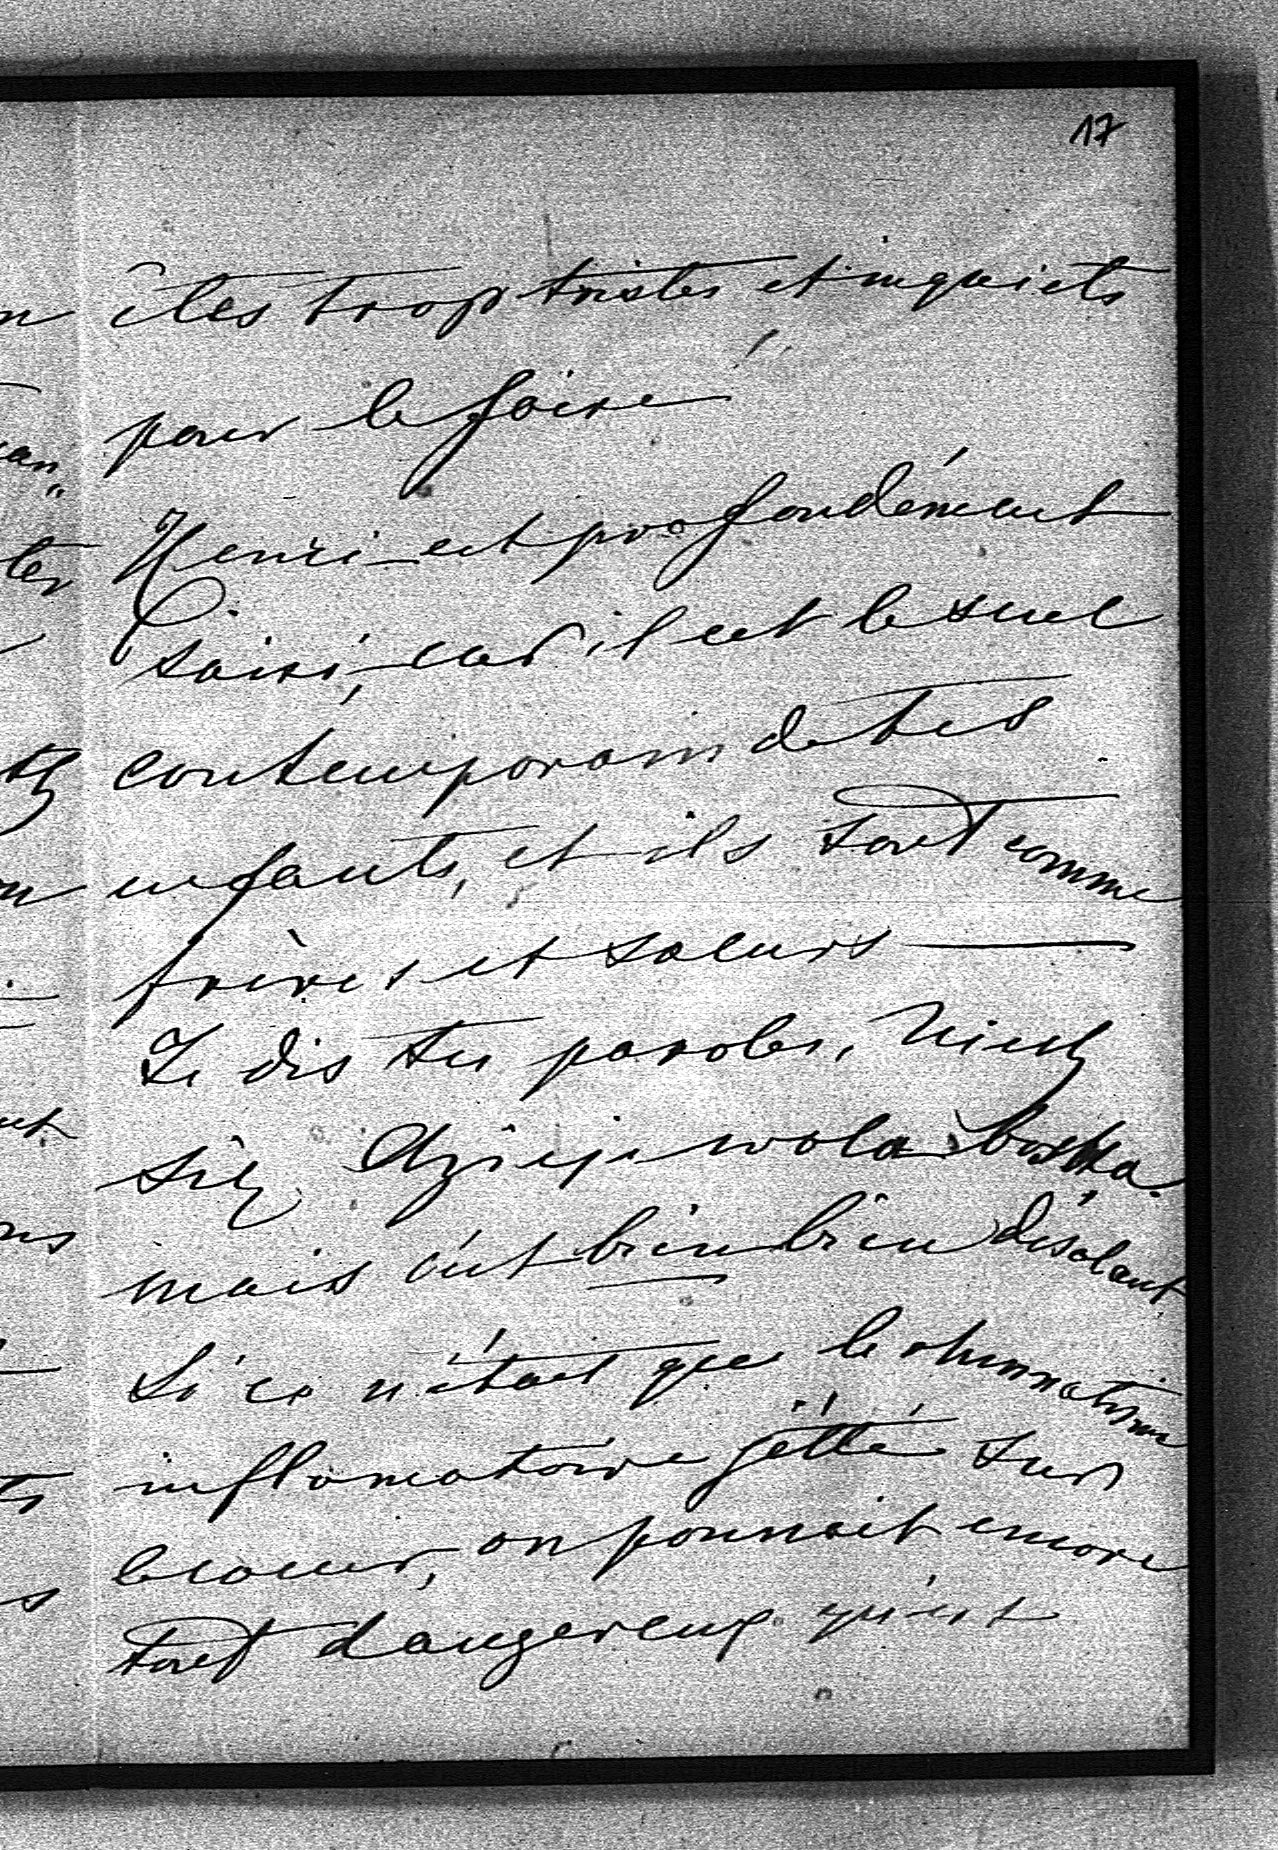 17
êtes trop tristes et inquiets
pour le faire!
Henri est profondément
saisi, car il est le seul
contemporain de tes
enfants, et ils sont comme
frères et soeurs —
Je dis tes paroles, niech
się dzieje wola boska.
mais c'est bien bien désolant
Si ce n'était que le rhumatisme
inflamatoire jétté sur
le coeur, on pourrait encore
tout dangereux qu'est